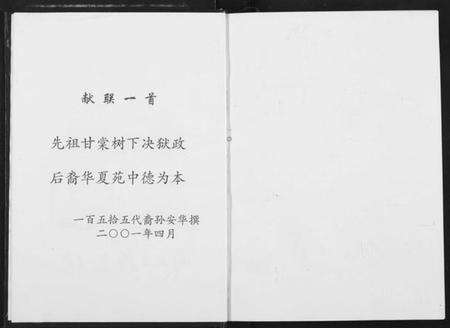 献联一首
先祖甘棠树下决狱政
后裔华夏苑中德为本
一百五拾五代裔孙安华撰
二〇〇一年四月